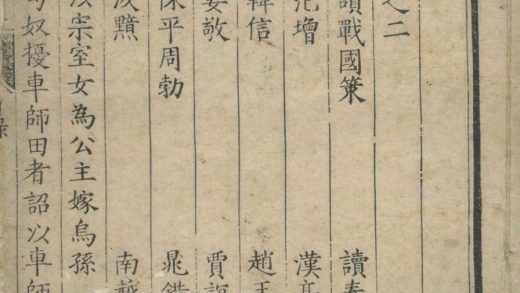 之二
讀戰國策　讀
范增　漢
韓信　趙王
婁敬　賈誼
陳平周勃　晁錯
汲黯　南越
以宗室女為公主嫁烏孫
匈奴擾車師田者詔以車師